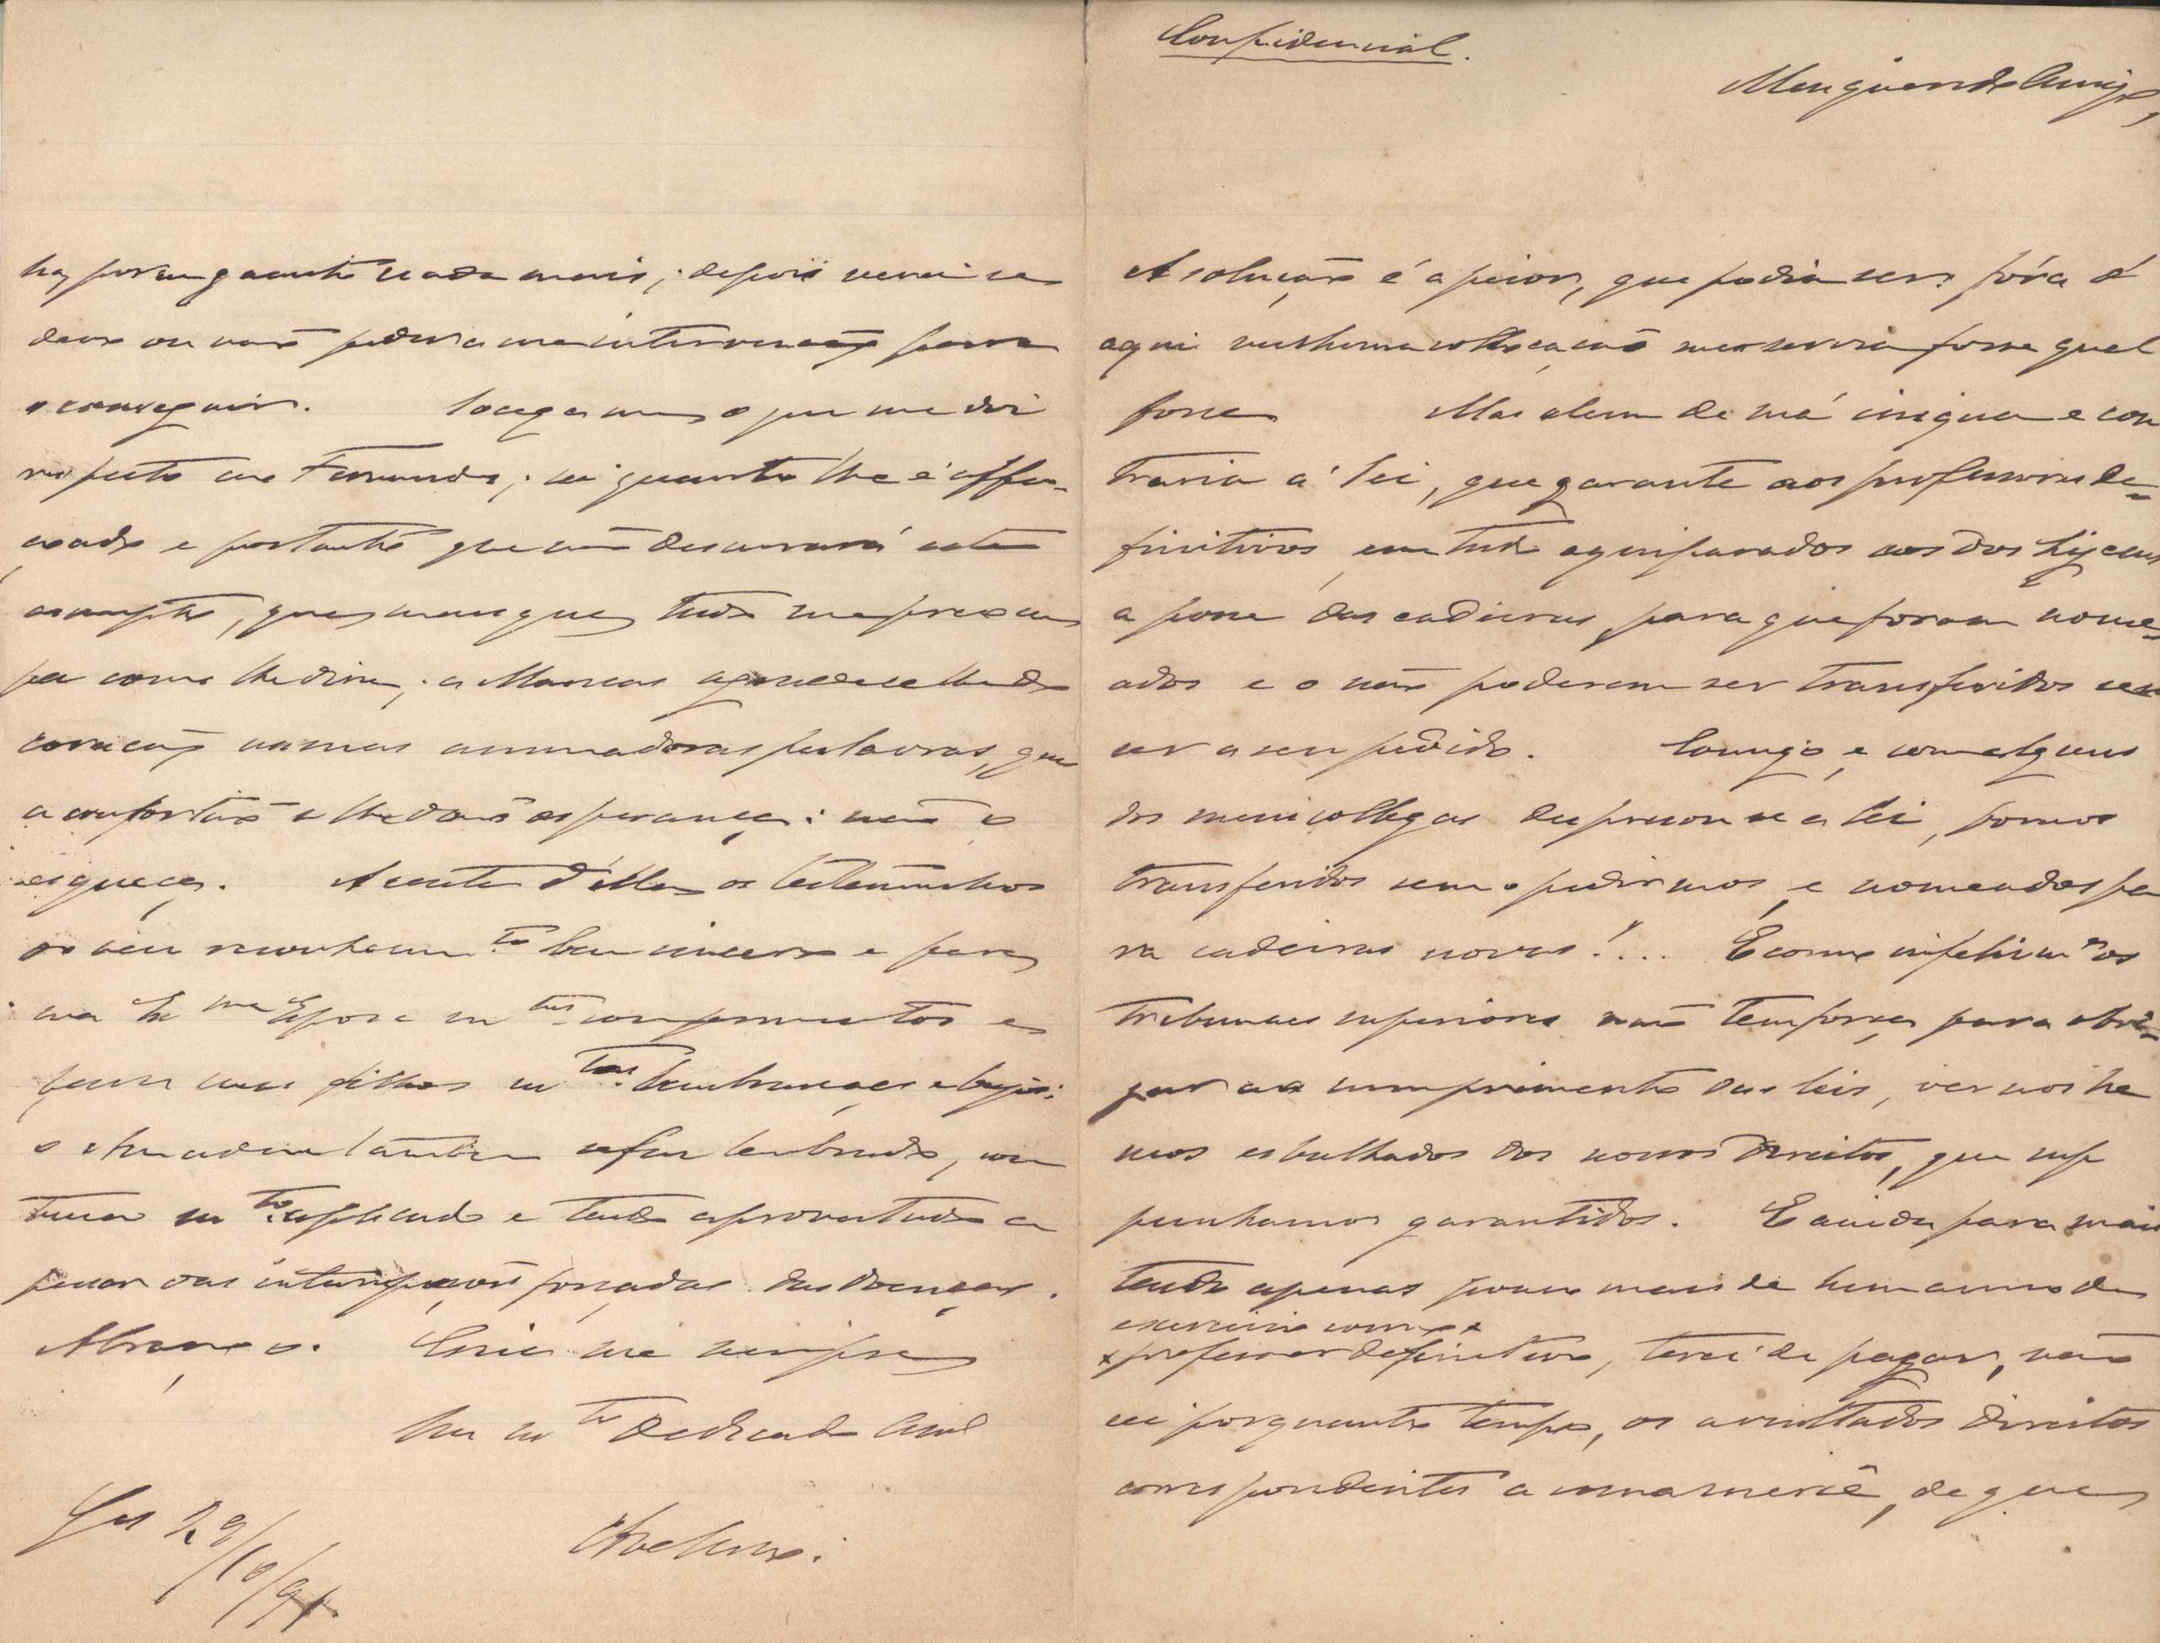 Confidencial.
Meu querido Amigo,
A solução é a peior, que podia ser: fóra d'
aqui nenhuma collocação me servia fosse qual
fosse Mas alem de má iniqua e con
traria á lei, que garante aos professores de=
finitivos em tudo equiparados aos dos Lyceus
a posse das cadeiras para que foram nome=
ados e o não poderem ser transferidos sem
ser a seu pedido. Comigo e com alguns
dos meus collegas despresou-se a lei, fomos
transferidos sem o pedirmos, e nomeados pa
ra cadeiras novas!... E como infelizm.te os
tribunaes superiores não tem força para obri=
gar ao cumprimento das leis, ver nos he
mos esbulhados dos nossos direitos, que sup
punhamos garantidos. E ainda para mais
tendo apenas pouco mais de hum anno de
exercicio como
professor definitivo, terei de pagar, não
sei por quanto tempo, os avultados direitos
correspondentes a uma mercê, de que
ha, por em quanto nada mais; depois verei se
devo ou não pedir a sua intervenção para
o conseguir. Socega-me o que me diz
respeito ao Fernando; sei quanto lhe é affei-
çoado e portanto que não descurará este
assumpto, que mais que tudo me preoccu
pa como lhe disse; a Marcas agradece-lhe do
coração as suas animadoras palavras, que
a confortão e lhe dão esperança: não o
esqueça. Aceite d'ella os testemunhos
do seu reconhecim.to bem sincero e para
sua Ex.ma Esposa m.tos comprimentos e
para seus filhos m.tas lembranças e beijos:
o tambem se faz lembrado, con
tinua m.to applicado e tendo aproveitado a
pesar das interrupções forçadas das doenças.
Abraço-o. Creia-me sempre
Seu m.to Dedicado Am.o
Avelino.
29/10/91.